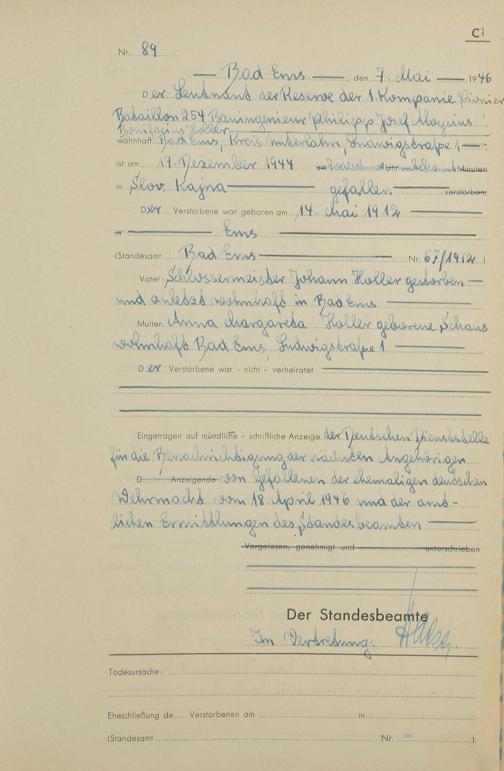 C1
Nr. 89
Bad Ems, den 7. Mai 1946
Der Leutnant der Reserve der 1. Kompanie Pionier
Bataillon 254 Bauingenieur Philipp Josef Aloysius
Bonifacius Holler,
wohnhaft Bad Ems, Kreis Unterlahn, Ludwigstraße 1
ist am 17. Dezember 1944 um Todesstunde Uhr unbekannt Minuten
in Slov. Kajna gefallen verstorben.
Der Verstorbene war geboren am 14. Mai 1912
in Ems
(Standesamt Bad Ems Nr. 67/1912)
Vater: Schlossermeister Johann Holler gestorben
und zuletzt wohnhaft in Bad Ems
Mutter: Anna Margareta Holler geborene Schaus
wohnhaft Bad Ems, Ludwigstraße 1
Der Verstorbene war - nicht - verheiratet
Eingetragen auf mündliche - schriftliche Anzeige der Deutschen Dienststelle
für die Benachrichtigung der nächsten Angehörigen
D Anzeigende von Gefallenen der ehemaligen deutschen
Wehrmacht vom 18. April 1946 und der amt-
lichen Ermittlungen des Standesbeamten
Vorgelesen, genehmigt und unterschrieben
Der Standesbeamte
In Vertretung:
Todesursache:
Eheschließung de Verstorbenen am in
(Standesamt Nr. ).